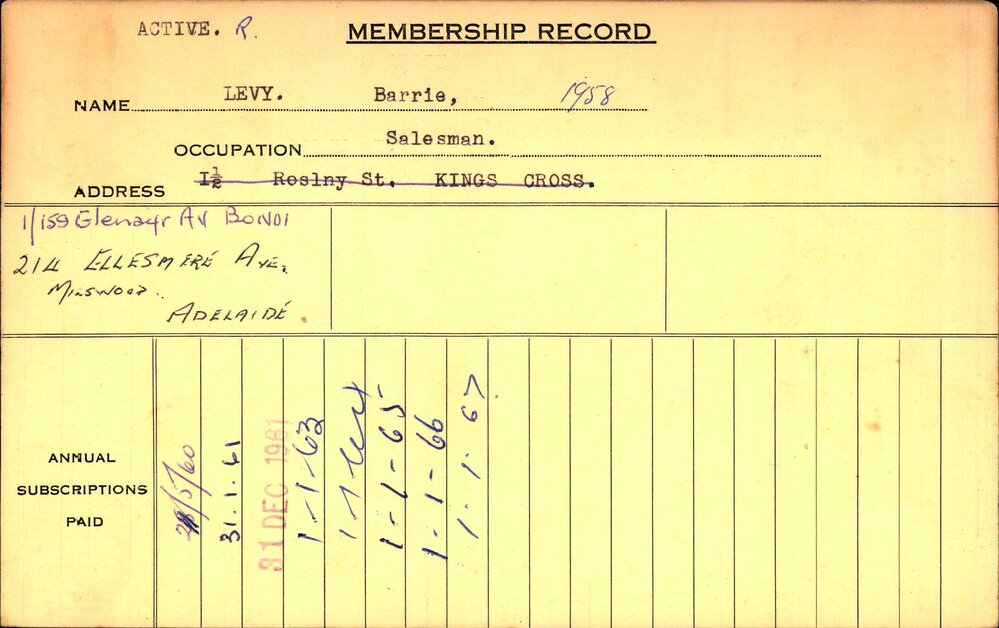 ACTIVE. R.
MEMBERSHIP RECORD
NAME LEVY. Barrie, 1958
OCCUPATION Salesman.
ADDRESS I½ Roslny St. KINGS CROSS.
1/159 Glenayr AV BONDI
214 ELLESMERE AVE.
MILSWOOD.
ADELAIDE.
ANNUAL
SUBSCRIPTIONS
PAID
28/5/60
31.1.61
31 DEC 1961
1-1-63
1-1-64
1-1-65
1-1-66
1-1-67